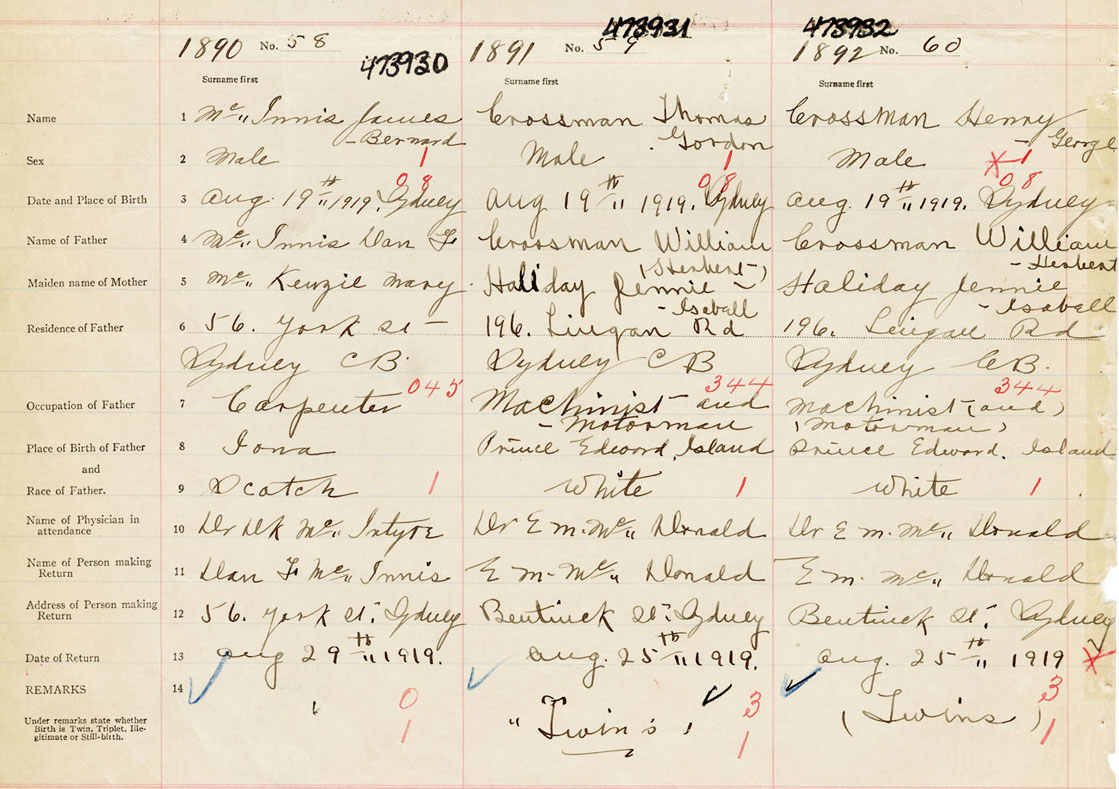 473931 473932
1890 No. 58 1891 No. 59 1892 No. 60
473930
Surname first Surname first Surname first
Name 1 Mc„ Innis James Crossman Thomas Crossman Henry
- Bernard - Gordon - George
Sex 2 Male 1 Male 1 Male X 1
08 08 08
Date and Place of Birth 3 Aug. 19th„ 1919. Sydney Aug 19th„ 1919. Sydney Aug. 19th„ 1919. Sydney
Name of Father 4 Mc„ Innis Dan F Crossman William Crossman William
(Herbert) - Herbert
Maiden name of Mother 5 Mc„ Kenzie Mary Haliday Jennie - Haliday Jennie
- Isaball - Isaball
Residence of Father 6 56. York St - 196. Lingan Rd 196. Lingan Rd
Sydney C B. Sydney C B Sydney C B.
045 344 344
Occupation of Father 7 Carpenter Machinist - and Machinist - (and)
- Motorman (Motorman)
Place of Birth of Father 8 Iona Prince Edward, Island Prince Edward. Island
and
Race of Father. 9 Scotch 1 White 1 White 1
Name of Physician in
attendance 10 Dr D K Mc„ Intyre Dr E M. Mc„ Donald Dr E M. Mc„ Donald
Name of Person making
Return 11 Dan F Mc„ Innis E M. Mc„ Donald E M. Mc„ Donald
Address of Person making
Return 12 56. York St. Sydney Bentinck St. Sydney Bentinck St. Sydney
Date of Return 13 Aug 29th„ 1919. Aug. 25th„ 1919. Aug. 25th„ 1919
REMARKS 14 0 "Twins" 3 (Twins) 3
Under remarks state whether
Birth is Twin, Triplet, Ille-
gitimate or Still-birth. 1 1 1